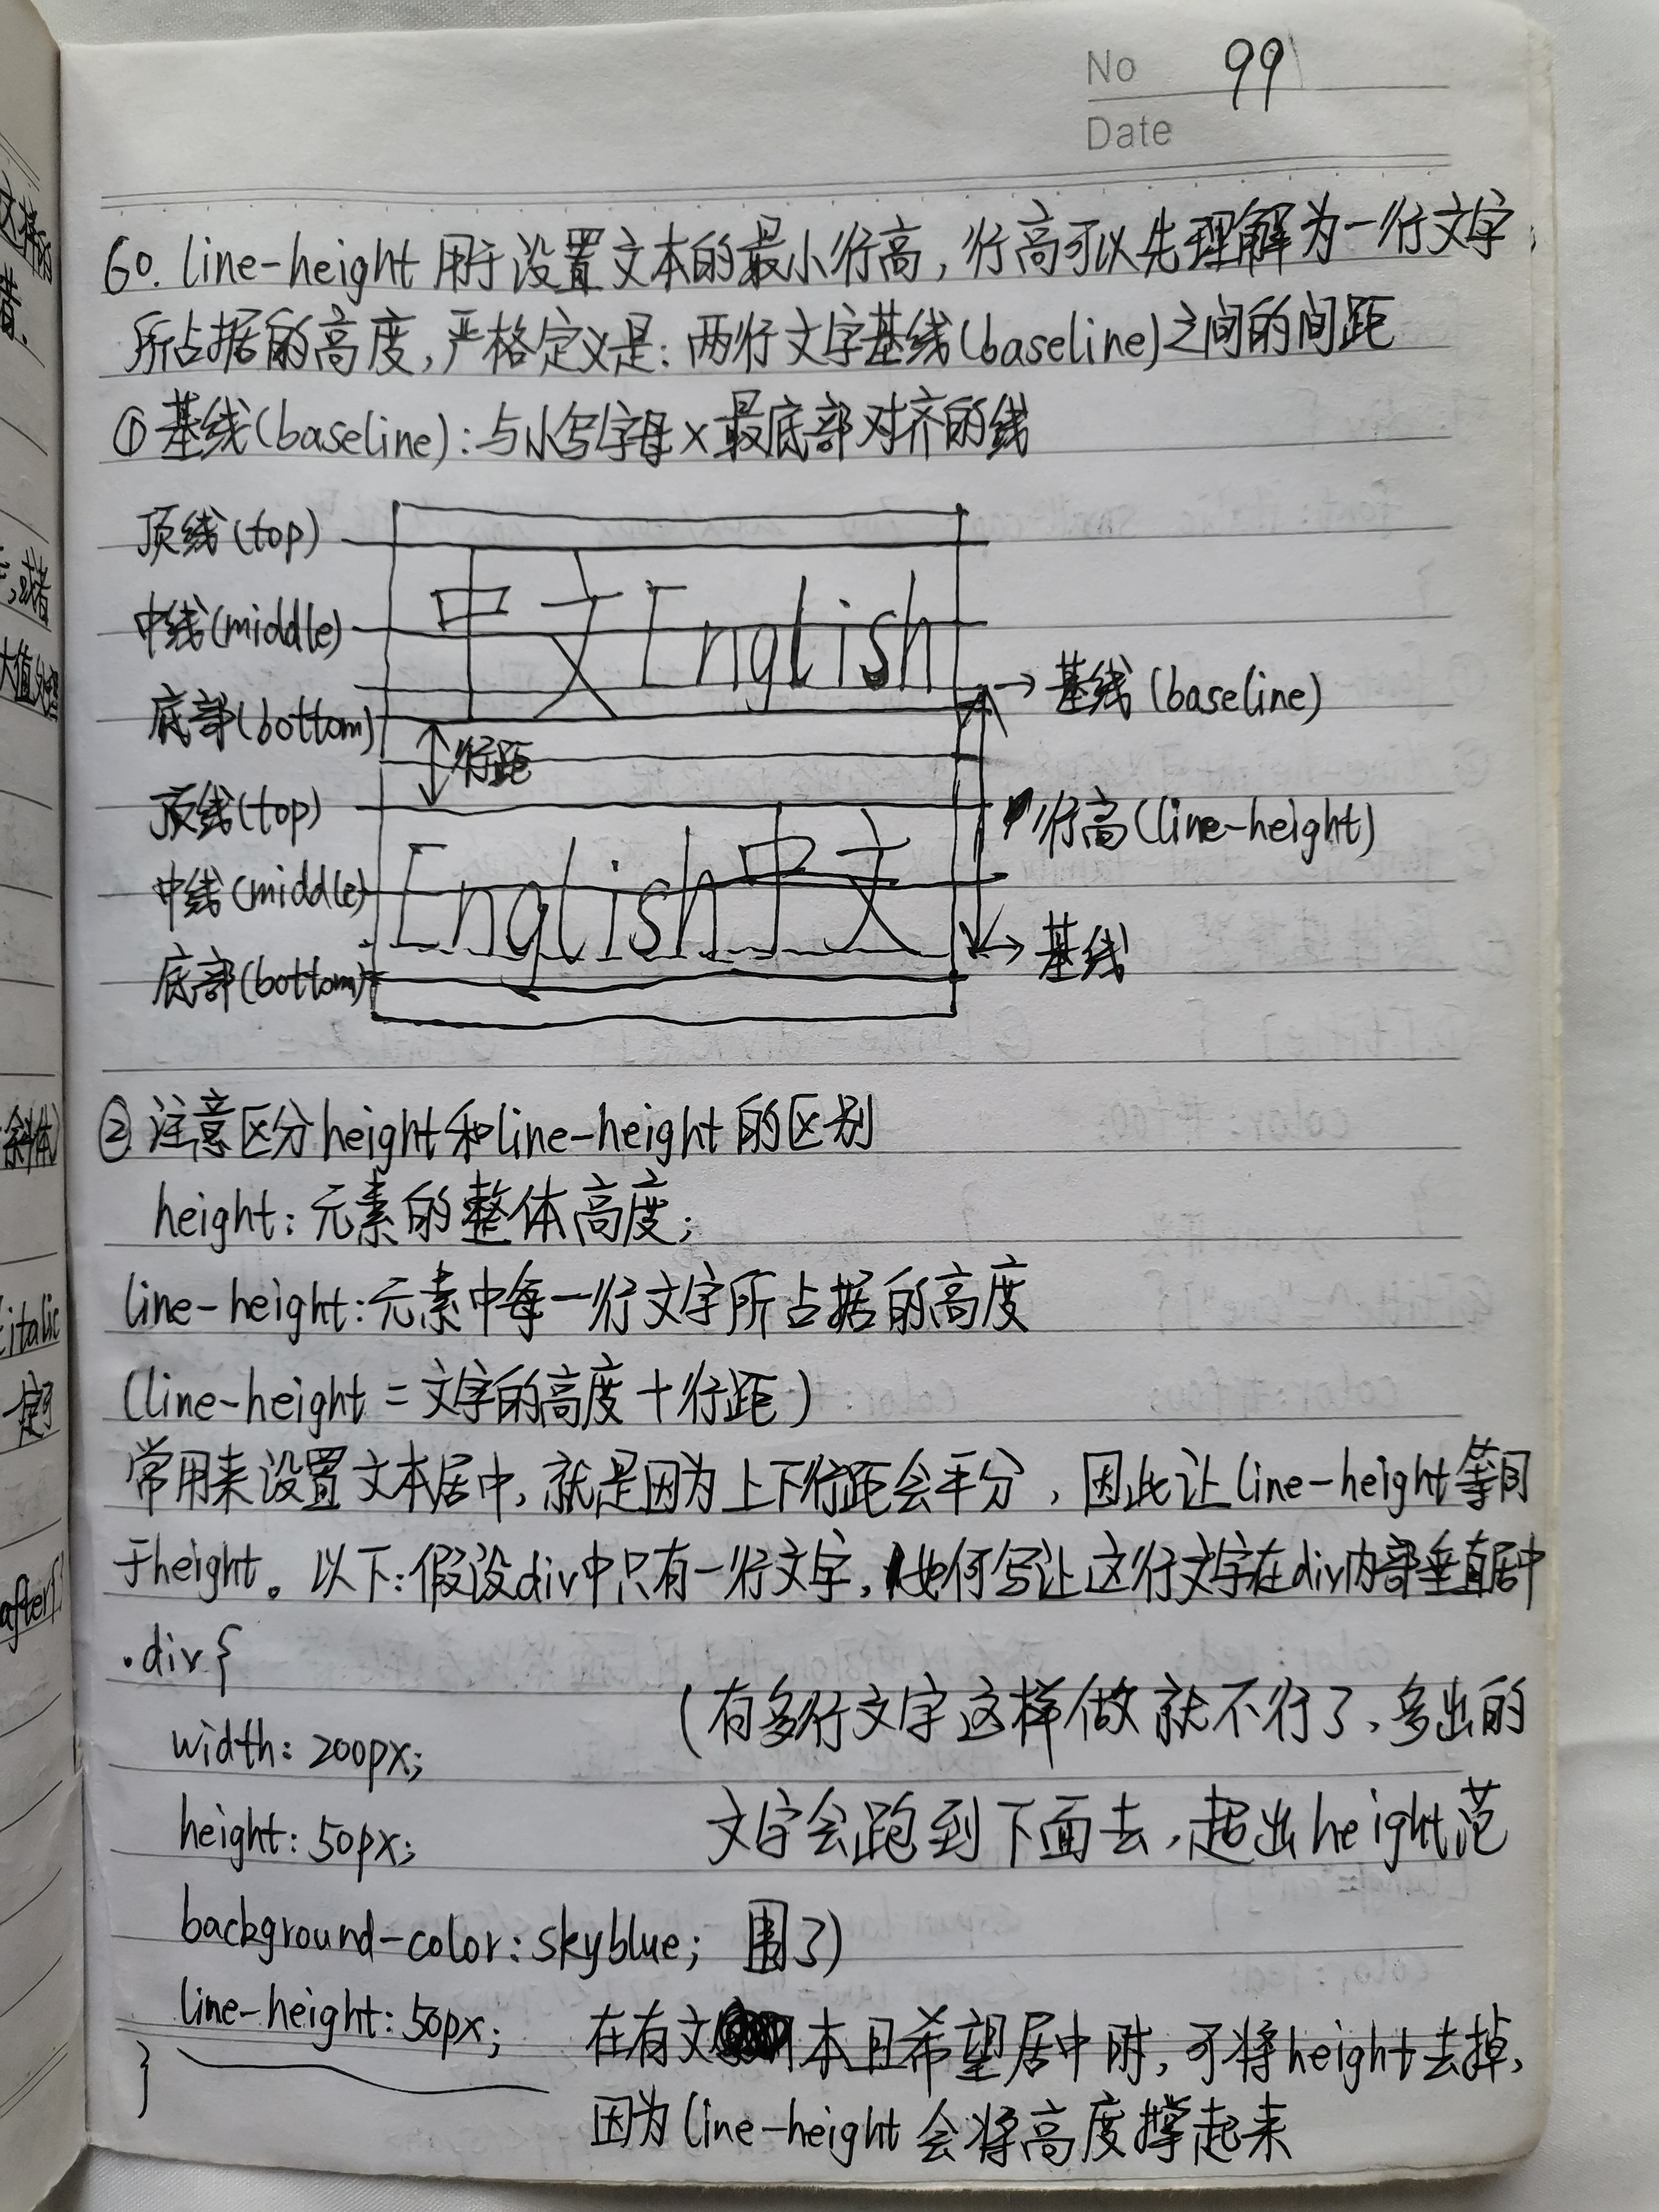 No 99
Date
60. line-height 用于设置文本的最小行高, 行高可以先理解为一行文字
所占据的高度, 严格定义是: 两行文字基线(baseline)之间的间距
①基线(baseline): 与小写字母x最底部对齐的线
顶线(top)
中文English
中线(middle)
底部(bottom)
→基线(baseline)
行距
顶线(top)
行高(line-height)
English中文
中线(middle)
→基线
底部(bottom)
②注意区分height和line-height的区别
height: 元素的整体高度;
line-height: 元素中每一行文字所占据的高度
(line-height = 文字的高度 + 行距)
常用来设置文本居中, 就是因为上下行距会平分, 因此让line-height等同
于height。以下: 假设div中只有一行文字, 如何写让这行文字在div内部垂直居中
.div{
width: 200px;
height: 50px;
background-color: skyblue;
line-height: 50px;
}
(有多行文字这样做就不行了, 多出的
文字会跑到下面去, 超出height范
围了)
在有文本且希望居中时, 可将height去掉,
因为line-height会将高度撑起来
斜体
italic
after